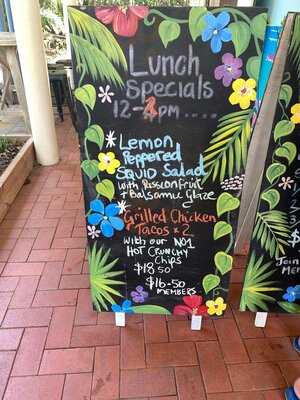 Lunch
Specials
12-4pm....
Lemon
Peppered
SQUID Salad
with Passionfruit
+ Balsamic Glaze
Grilled Chicken
Tacos x 2
With our NO1
HOT CRUNCHY
Chips
$18.50
$16-50
MEMBERS
JOIN